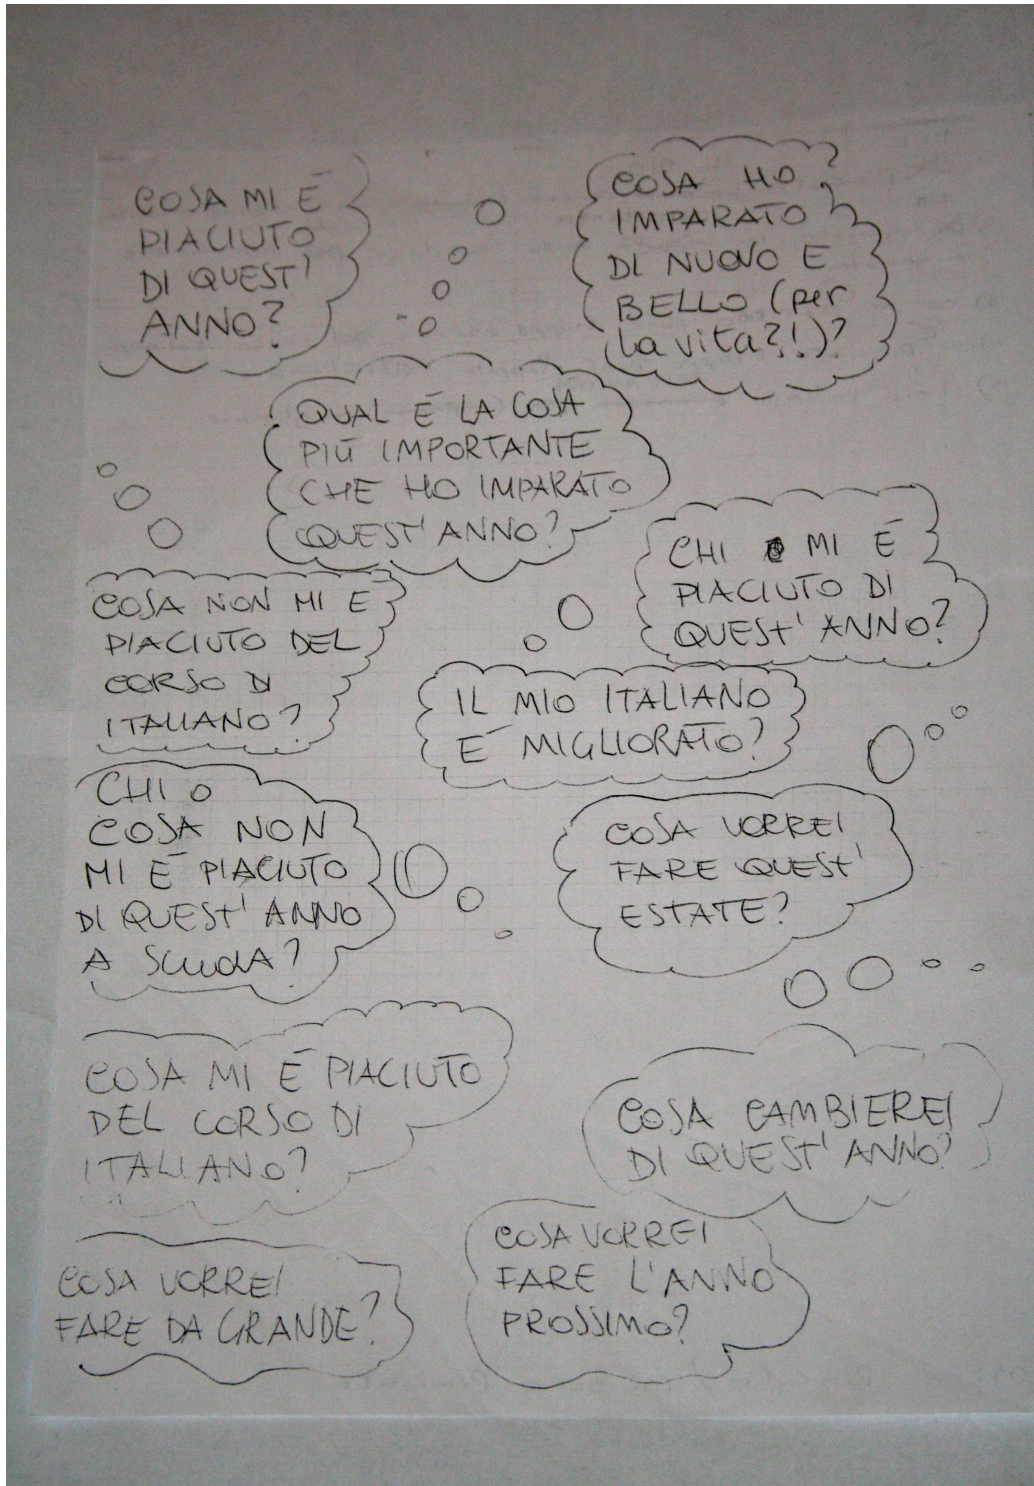 COSA MI È
PIACIUTO
DI QUEST'
ANNO?
COSA HO
IMPARATO
DI NUOVO E
BELLO (per
la vita?!)?
QUAL È LA COSA
PIÙ IMPORTANTE
CHE HO IMPARATO
QUEST'ANNO?
CHI MI È
PIACIUTO DI
QUEST'ANNO?
COSA NON MI È
PIACIUTO DEL
CORSO DI
ITALIANO?
IL MIO ITALIANO
È MIGLIORATO?
CHI O
COSA NON
MI È PIACIUTO
DI QUEST'ANNO
A SCUOLA?
COSA VORREI
FARE QUEST'
ESTATE?
COSA MI È PIACIUTO
DEL CORSO DI
ITALIANO?
COSA CAMBIEREI
DI QUEST'ANNO?
COSA VORREI
FARE DA GRANDE?
COSA VORREI
FARE L'ANNO
PROSSIMO?